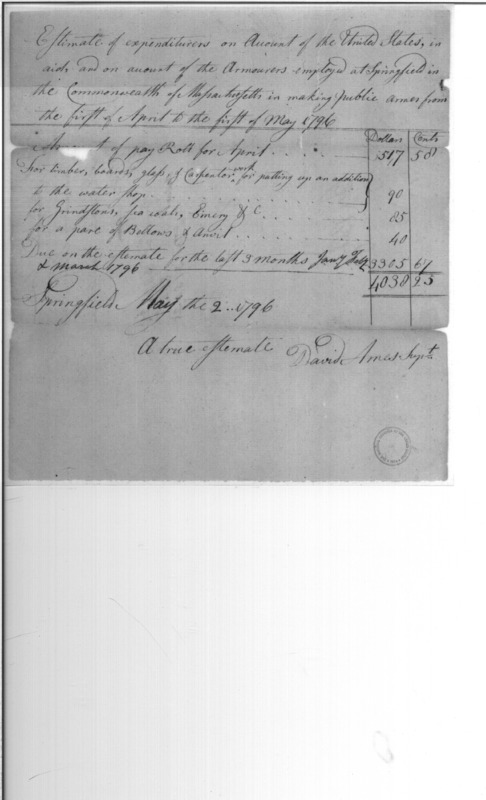 Estimate of expenditurers on Account of the United States, in
aid, and on account of the Armourers employed at Springfield in
the Commonwealth of Massachusetts in making public armes from
the first of April to the first of May 1796
Dollars Cents
Amount of pay Roll for April 517 58
For timber, boards, glass & Carpentor work for putting up an addition
to the water shop 90
for Grindstons, sea coals, Emery &c 85
for a pare of Bellows & Anvil 40
Due on the estemate for the last 3 months Jany Feby 3305 67
& march 1796
4038 25
Springfield May the 2 1796
A true estemate
David Ames Supt